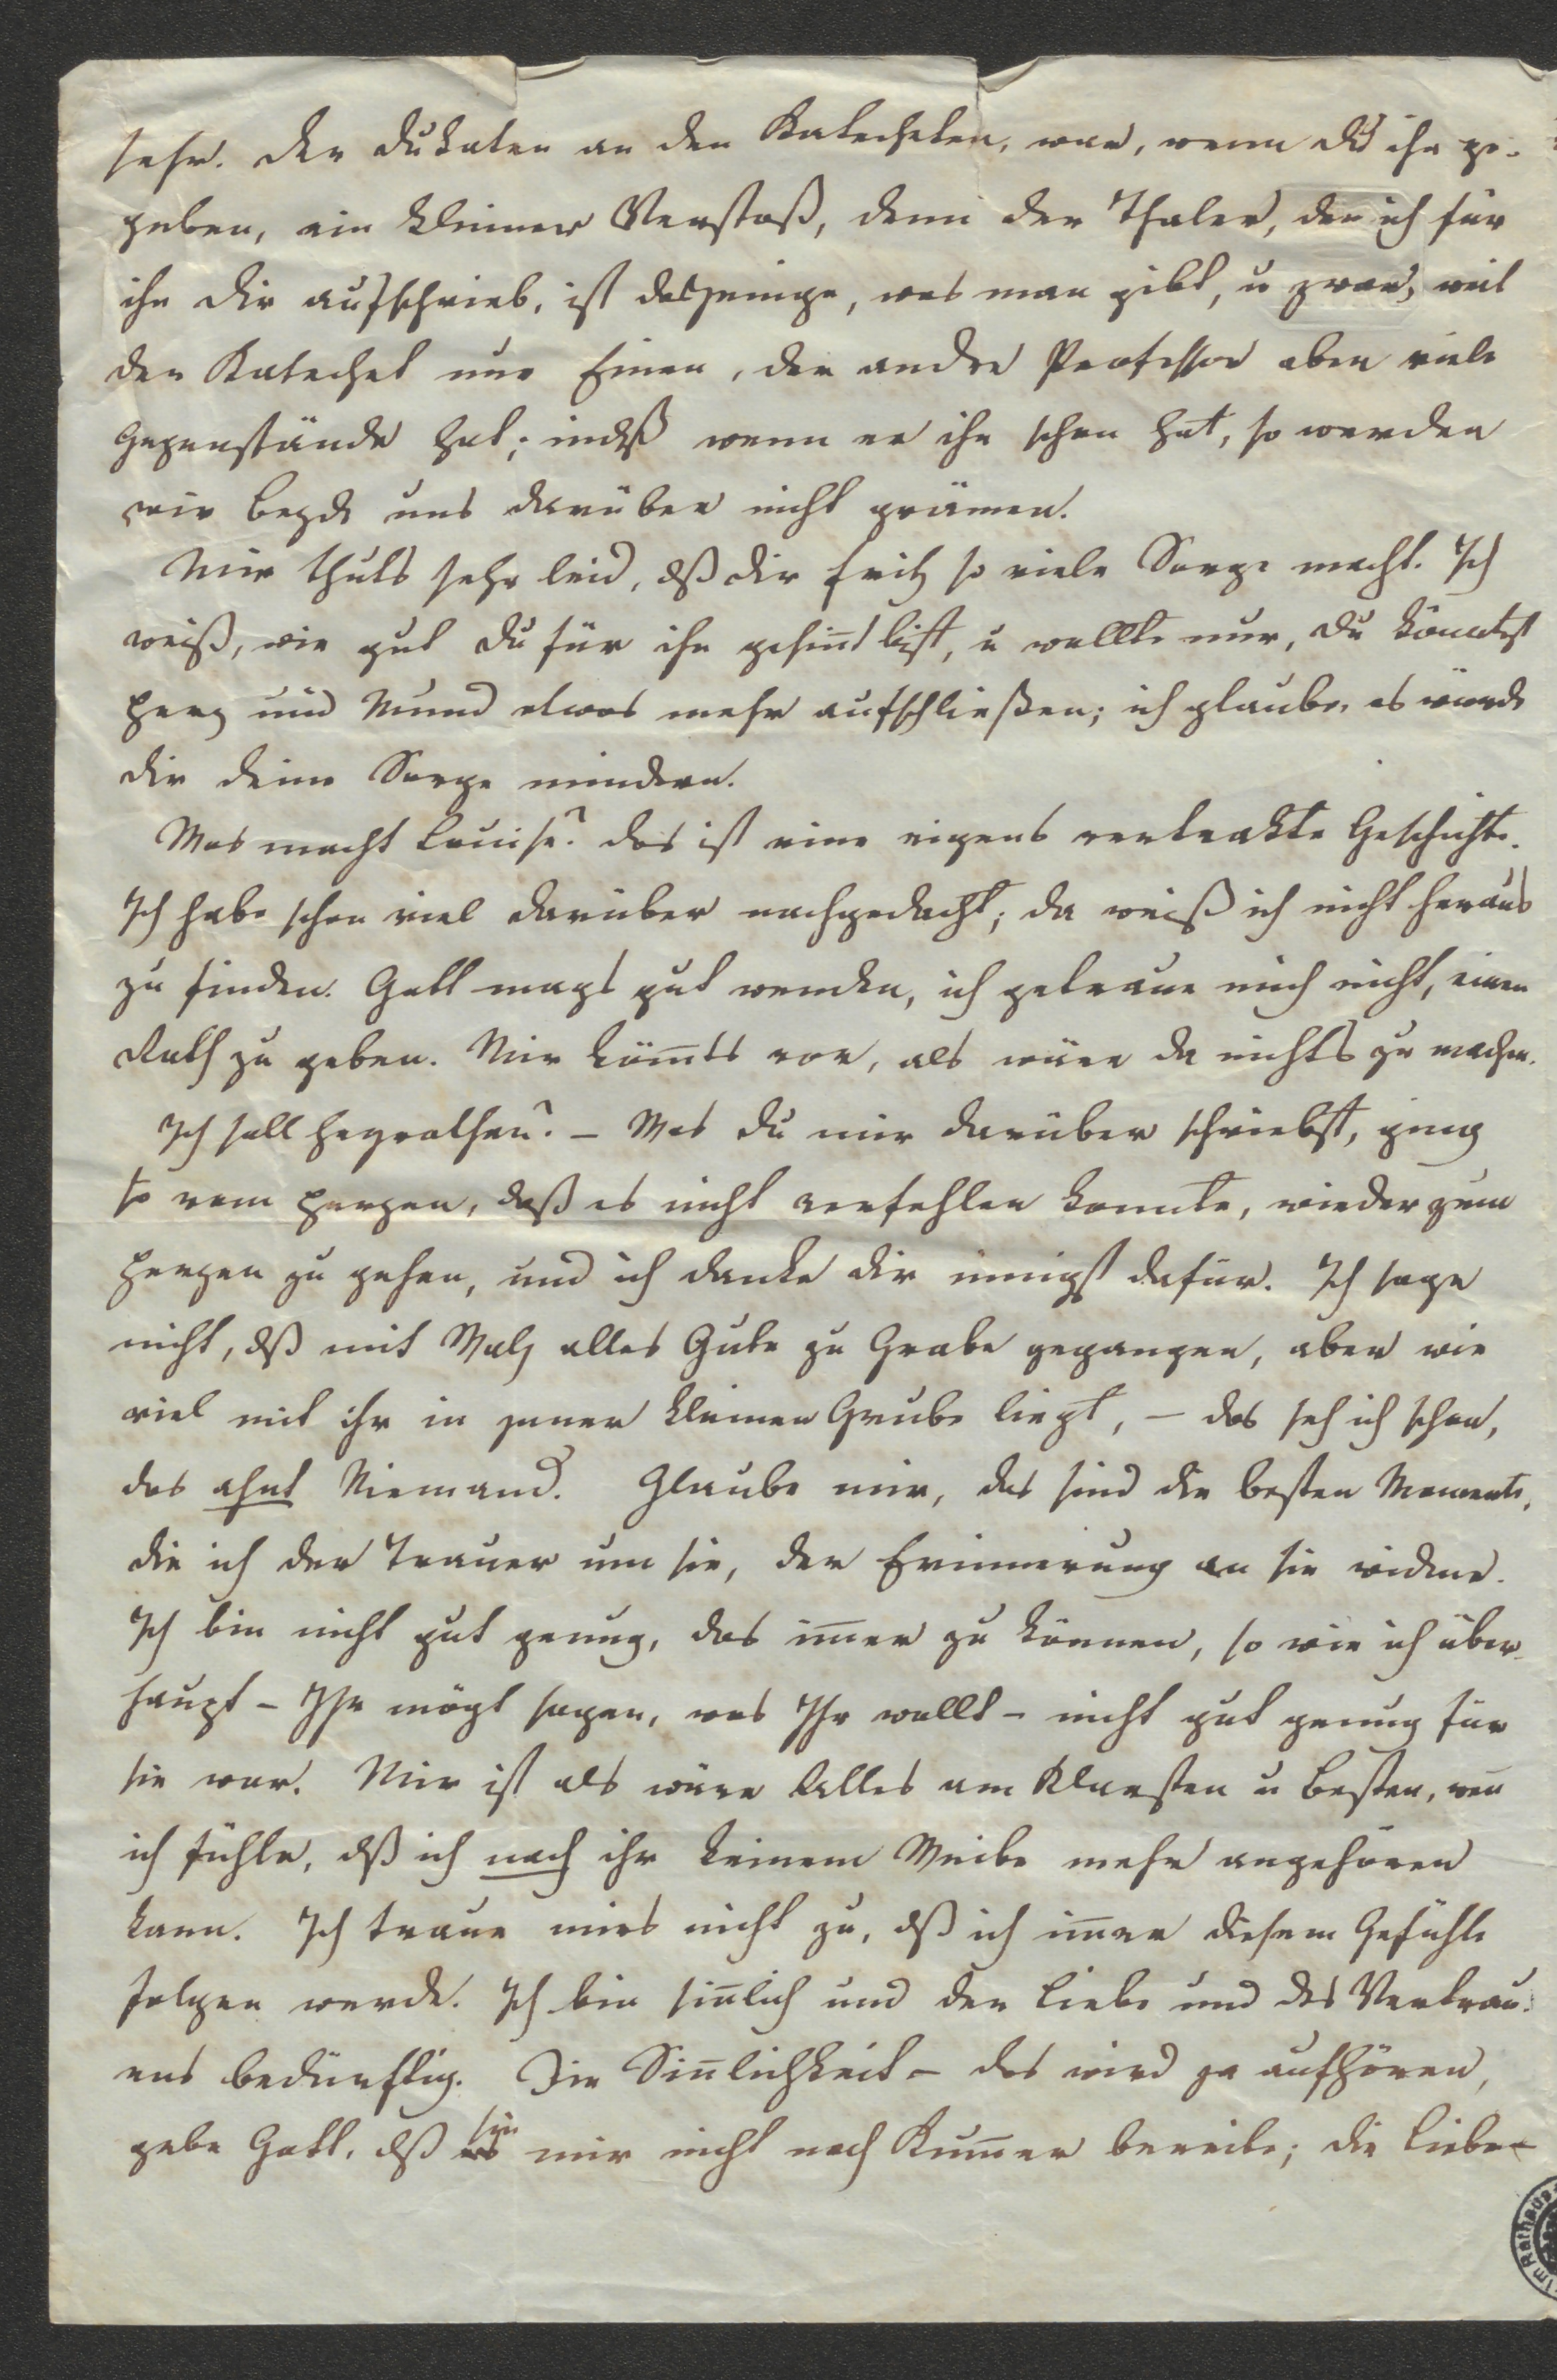 sehr. Der Dukaten an den Katecheten, war, wenn du ihn ge-
geben, ein kleiner Verstoß, denn der Thaler, den ich für
ihn dir aufschrieb, ist dasjenige, was man gibt, u zwar, weil
der Katechet nur Einen, der andre Professor aber viele
Gegenstände hat; indeß wenn er ihn schon hat, so werden
wir beyde uns darüber nicht grämen.
Mir thuts sehr leid, dß dir Fritz so viele Sorge macht. Ich
weiß, wie gut du für ihn gesin̄t bist, u wollte nur, du könntest
Herz und Mund etwas mehr aufschließen; ich glaube, es würde
dir deine Sorge mindern.
Was macht Louise? das ist eine eigens vertrakte Geschichte.
Ich habe schon viel darüber nachgedacht; da weiß ich nicht heraus
zu finden. Gott mags gut wenden, ich getraue mich nicht, einen
Rath zu geben. Mir köm̄ts vor, als wäre da nichts zu machen.
Ich soll heyrathen? – Was du mir darüber schriebst, ging
so vom Herzen, daß es nicht verfehlen konnte, wieder zum
Herzen zu gehen, und ich danke dir innigst dafür. Ich sage
nicht, dß mit Malj alles Gute zu Grabe gegangen, aber wie
viel mit ihr in jener kleinen Grube liegt, – das seh ich schon,
das ahnt Niemand. Glaube mir, das sind die besten Momente,
die ich der Trauer um sie, der Erinnerung an sie widme.
Ich bin nicht gut genug, das im̄er zu können, so wie ich über-
haupt – Ihr mögt sagen, was Ihr wollt – nicht gut genug für
sie war. Mir ist als wäre Alles am Klarsten u Besten, wen̄
ich fühle, dß ich nach ihr keinem Weibe mehr angehören
kann. Ich traue mirs nicht zu, dß ich im̄er diesem Gefühle
folgen werde. Ich bin sin̄lich und der Liebe und des Vertrau-
ens bedürftig. Die Sin̄lichkeit – das wird ja aufhören,
gebe Gott, dß sie mir nicht noch Kum̄er bereite; die Liebe –
im Rathaus